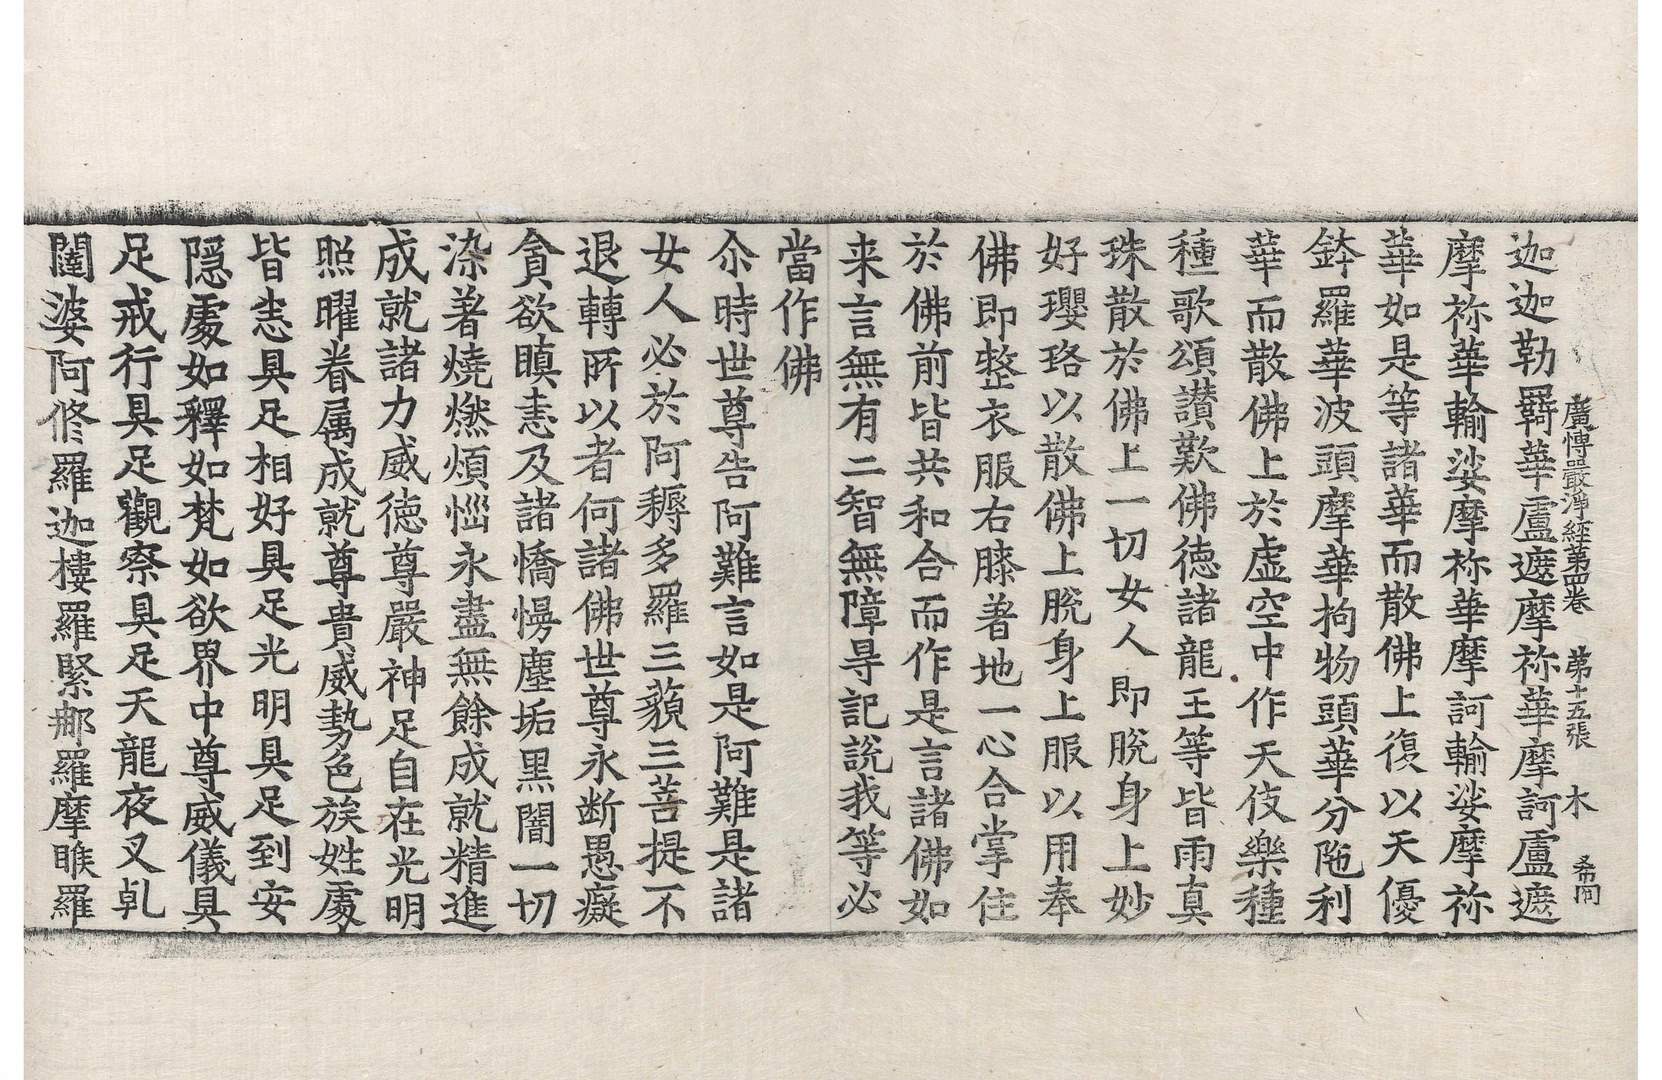 廣博嚴淨經第四卷 第十五張 木 希同
迦迦勒羇華盧遮摩祢華摩訶盧遮
摩祢華輸娑摩祢華摩訶輸娑摩祢
華如是等諸華而散佛上復以天優
鉢羅華波頭摩華拘物頭華分陁利
華而散佛上於虛空中作天伎樂種
種歌頌讃歎佛徳諸龍王等皆雨真
珠散於佛上一切女人即脫身上妙
好瓔珞以散佛上脫身上服以用奉
佛即整衣服右膝著地一心合掌住
於佛前皆共和合而作是言諸佛如
来言無有二智無障㝵記説我等必
當作佛
尒時世尊告阿難言如是阿難是諸
女人必於阿耨多羅三藐三菩提不
退轉所以者何諸佛世尊永断愚癡
貪欲瞋恚及諸憍慢塵垢黑闇一切
染著燒燃煩惱永盡無餘成就精進
成就諸力威徳尊嚴神足自在光明
照曜眷属成就尊貴威勢色族姓䖏
皆悉具足相好具足光明具足到安
隠䖏如釋如梵如欲界中尊威儀具
足戒行具足觀察具足天龍夜叉乹
闥婆阿修羅迦樓羅緊那羅摩睺羅